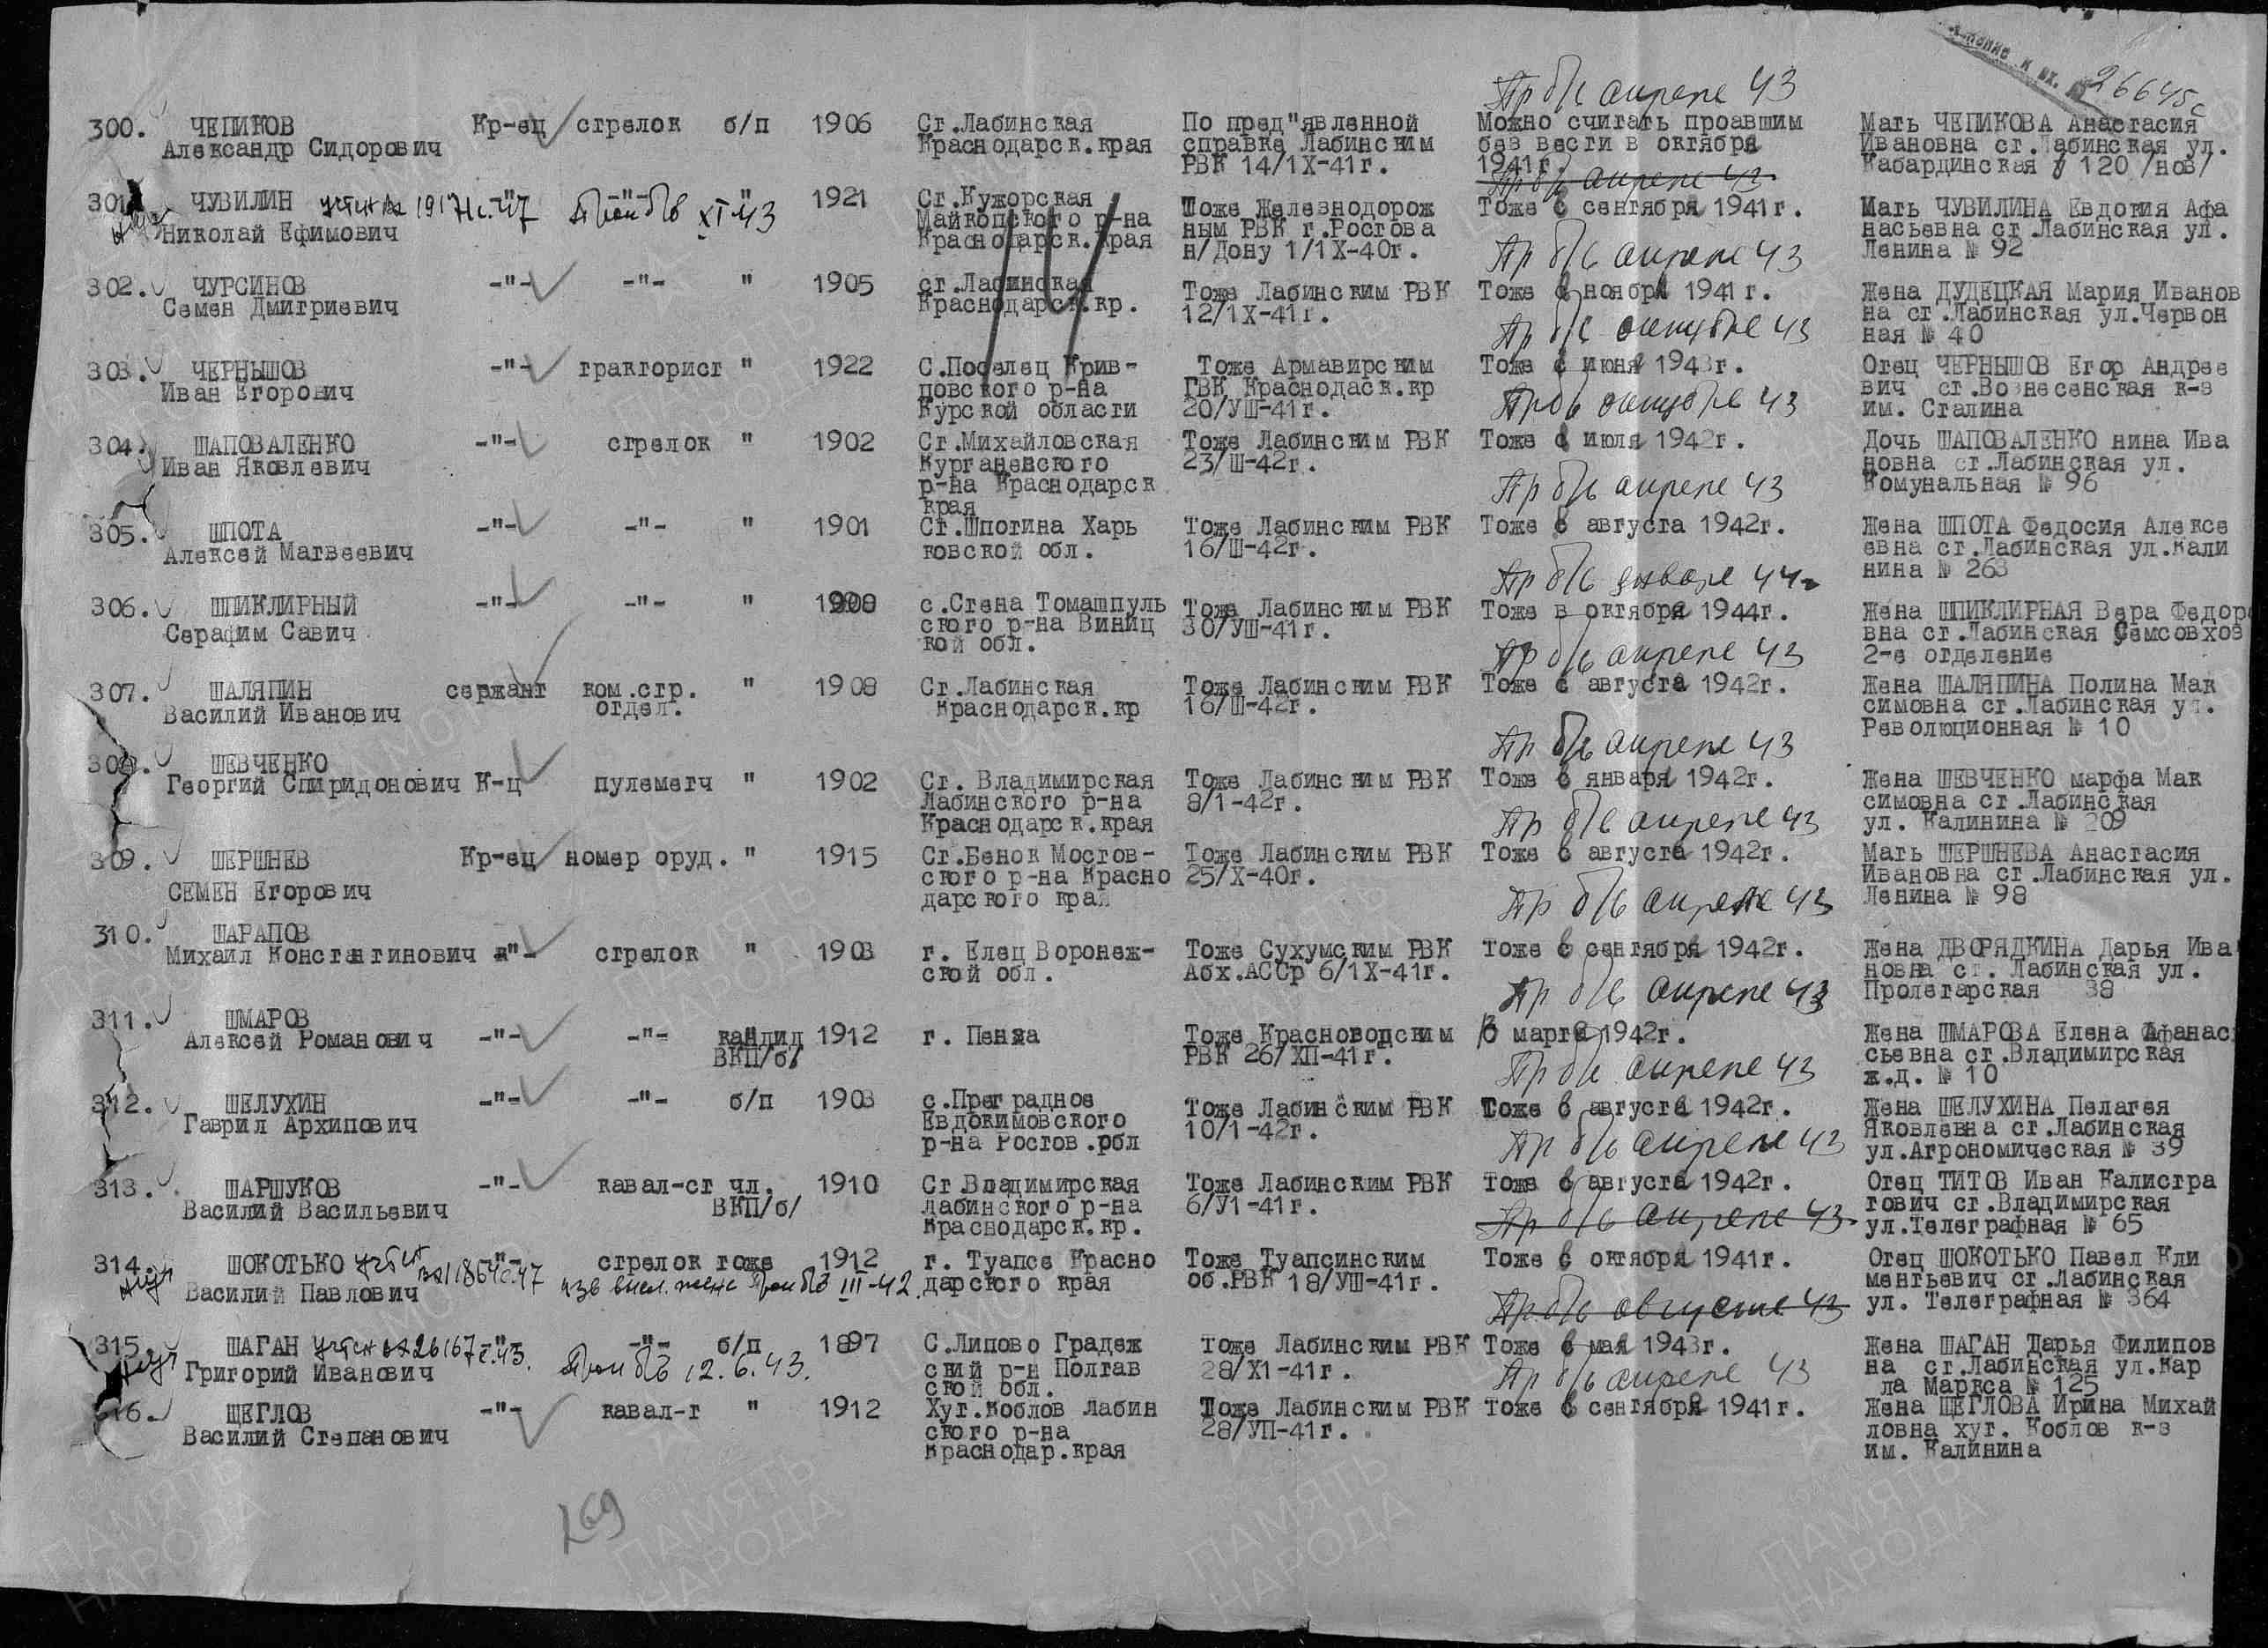 26645с
Пр б/в апреле 43
300. ЧЕПИКОВ Кр-ец стрелок б/п 1906 Ст.Лабинская По пред"явленной Можно считать проавшим Мать ЧЕПИКОВА Анастасия
Александр Сидорович Краснодарск.края справке Лабинским без вести в октября Ивановна ст.Лабинская ул.
РВК 14/1Х-41г. 1941г. Кабардинская 120 /нов/
Пр б/в апреле 43
301. ЧУВИЛИН учтен вх 1917 -"- -"- " 1921 Ст.Кужорская Тоже Железнодорож Тоже в сентября 1941г. Мать ЧУВИЛИНА Евдокия Афа
Николай Ефимович XI-43 Майкопского р-на ным РВК г.Ростова насьевна ст.Лабинская ул.
Краснодарск.края н/Дону 1/1Х-40г. Ленина № 92
Пр б/в апреле 43
302. ЧУРСИНОВ -"- -"- " 1905 ст.Лабинская Тоже Лабинским РВК Тоже в ноября 1941г. Жена ДУДЕЦКАЯ Мария Иванов
Семен Дмитриевич Краснодарск.кр. 12/1Х-41г. на ст.Лабинская ул.Червон
Пр б/в октябре 43 ная № 40
303. ЧЕРНЫШОВ -"- тракторист " 1922 С.Поселец Крив- Тоже Армавирским Тоже в июня 1943г. Отец ЧЕРНЫШОВ Егор Андрее
Иван Егорович повского р-на ГВК Краснодаск.кр вич ст.Вознесенская к-з
Курской области 20/УШ-41г. им. Сталина
Пр б/в октябре 43
304. ШАПОВАЛЕНКО -"- стрелок " 1902 Ст.Михайловская Тоже Лабинским РВК Тоже в июля 1942г. Дочь ШАПОВАЛЕНКО нина Ива
Иван Яковлевич Курганенского 23/Ш-42г. новна ст.Лабинская ул.
р-на Краснодарск Комунальная № 96
края
Пр б/в апреле 43
305. ШПОТА -"- -"- " 1901 Ст.Шпотина Харь Тоже Лабинским РВК Тоже в августа 1942г. Жена ШПОТА Федосия Алексе
Алексей Матвеевич ковской обл. 16/Ш-42г. евна ст.Лабинская ул.Кали
нина № 263
Пр б/в январе 44
306. ШПИКЛИРНЫЙ -"- -"- " с.Стена Томашпуль Тоже Лабинским РВК Тоже в октября 1944г. Жена ШПИКЛИРНАЯ Вера Федор
Серафим Савич ского р-на Виниц 30/УШ-41г. вна ст.Лабинская Семсовхоз
кой обл. 2-е отделение
Пр б/в апреле 43
307. ШАЛЯПИН сержант ком.стр. " 1908 Ст.Лабинская Тоже Лабинским РВК Тоже в августа 1942г. Жена ШАЛЯПИНА Полина Мак
Василий Иванович отдел. Краснодарск.кр 16/Ш-42г. симовна ст.Лабинская ул.
Революционная № 10
Пр б/в апреле 43
308. ШЕВЧЕНКО
Георгий Спиридонович К-ц пулеметч " 1902 Ст. Владимирская Тоже Лабинским РВК Тоже в января 1942г. Жена ШЕВЧЕНКО марфа Мак
Лабинского р-на 8/1-42г. симовна ст.Лабинская
Краснодарск.края ул. Калинина № 209
Пр б/в апреле 43
309. ШЕРШНЕВ Кр-ец номер оруд. " 1915 Ст.Бенок Мостов- Тоже Лабинским РВК Тоже в августа 1942г. Мать ШЕРШНЕВА Анастасия
СЕМЕН Егорович ского р-на Красно 25/Х-40г. Ивановна ст.Лабинская ул.
дарского края Ленина № 98
Пр б/в апреле 43
310. ШАРАПОВ
Михаил Константинович -"- стрелок " 1903 г. Елец Воронеж- Тоже Сухумским РВК Тоже в сентября 1942г. Жена ДВОРЯДКИНА Дарья Ива
ской обл. Абх.АССр 6/1Х-41г. новна ст. Лабинская ул.
Пролетарская 38
Пр б/в апреле 43
311. ШМАРОВ
Алексей Романович -"- -"- кандид 1912 г. Пенза Тоже Красноводским В марта 1942г. Жена ШМАРОВА Елена Афанас
ВКП/б/ РВК 26/ХП-41г. сьевна ст.Владимирская
ж.д. № 10
Пр б/в апреле 43
312. ШЕЛУХИН -"- -"- б/п 1903 с.Преградное Тоже Лабинским РВК Тоже в августа 1942г. Жена ШЕЛУХИНА Пелагея
Гаврил Архипович Евдокимовского 10/1-42г. Яковлевна ст.Лабинская
р-на Ростов.обл ул.Агрономическая № 39
Пр б/в апреле 43
313. ШАРШУКОВ -"- кавал-ст чл. 1910 Ст Владимирская Тоже Лабинским РВК Тоже в августа 1942г. Отец ТИТОВ Иван Калистра
Василий Васильевич ВКП/б/ Лабинского р-на 6/У1-41г. тович ст.Владимирская
Краснодарск.кр. ул.Телеграфная № 65
Пр б/в апреле 43
314. ШОКОТЬКО учтен -"- стрелок тоже 1912 г. Туапсе Красно Тоже Туапсинским Тоже в октября 1941г. Отец ШОКОТЬКО Павел Кли
Василий Павлович вх 11864с.47 III-42. дарского края об.РВК 18/УШ-41г. ментьевич ст.Лабинская
ул. Телеграфная № 364
Пр б/в августе 43
315. ШАГАН учтен вх 26167с.43. -"- -"- б/п 1897 С.Липово Градеж Тоже Лабинским РВК Тоже в мая 1943г. Жена ШАГАН Дарья Филипов
Григорий Иванович 12.6.43. ский р-н Полтав 28/Х1-41г. на ст.Лабинская ул.Кар
ской обл. ла Маркса № 125
Пр б/в апреле 43
316. ЩЕГЛОВ -"- кавал-т " 1912 Хут.Коблов Лабин Тоже Лабинским РВК Тоже в сентября 1941г. Жена ЩЕГЛОВА Ирина Михай
Василий Степанович ского р-на 28/УП-41г. ловна хут. Коблов к-з
Краснодар.края им. Калинина
269
ПАМЯТЬ НАРОДА